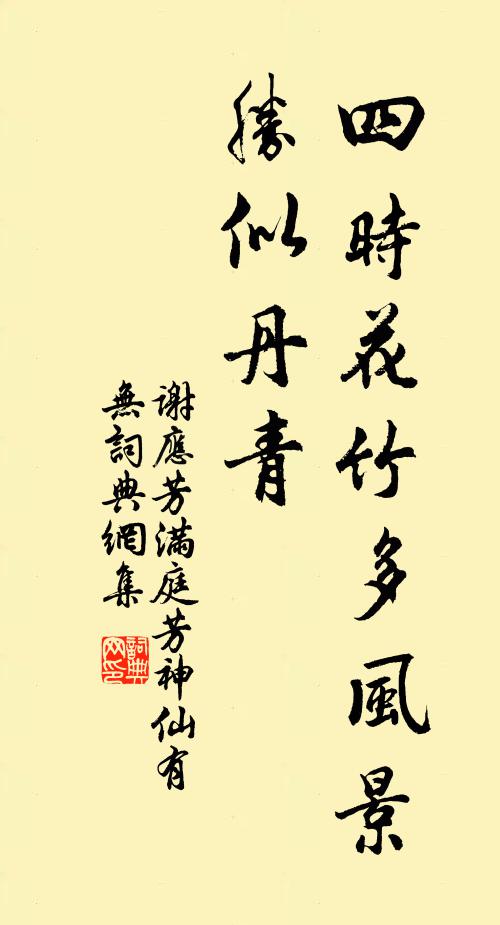 四時花竹多風景
勝似丹青
謝應芳滿庭芳神仙有
無詞典網集
詞典
网印